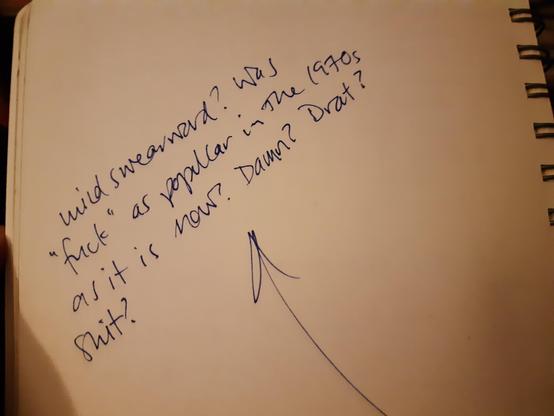 mild swearword? Was
"fuck" as popular in the 1970s
as it is now? Damn? Drat?
Shit?